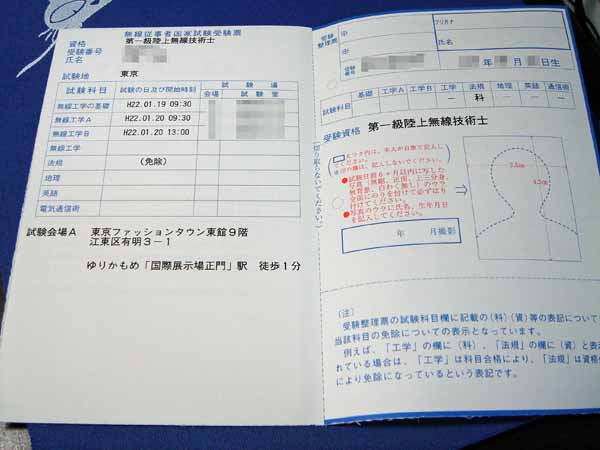 無線従事者国家試験受験票
資格 第一級陸上無線技術士
受験番号
氏名
試験地 東京
試験科目 試験の日及び開始時刻 試験場
会場 試験室
無線工学の基礎 H22.01.19 09:30
無線工学A H22.01.20 09:30
無線工学B H22.01.20 13:00
無線工学
法規 (免除)
地理
英語
電気通信術
試験会場A 東京ファッションタウン東館9階
江東区有明3-1
ゆりかもめ「国際展示場正門」駅 徒歩1分
受験整理票
フリガナ
氏名
受験番号
年 月 日生
試験科目 基礎 工学A 工学B 工学 法規 地理 英語 通信術
－ 科 － － －
受験資格 第一級陸上無線技術士
太ワク内は、本人が自筆で記入し
てください。
印の欄は、記入しないでください。
●試験日前6ヶ月以内に写した
写真(無帽、正面、上三分身、
無背景、白わく無し)のウラ
全面にのりを付けて必ずはり
付けてください。
●写真のウラに氏名、生年月日
を記入してください。
年 月撮影
3.0cm
4.5cm
(注)
受験整理票の試験科目欄に記載の(科)(資)等の表記について
当該科目の免除についての表示となっています。
例えば、「工学」の欄に(科)、「法規」の欄に(資)と表示
れている場合は、「工学」は科目合格により、「法規」は資格
により免除になっているという表記です。